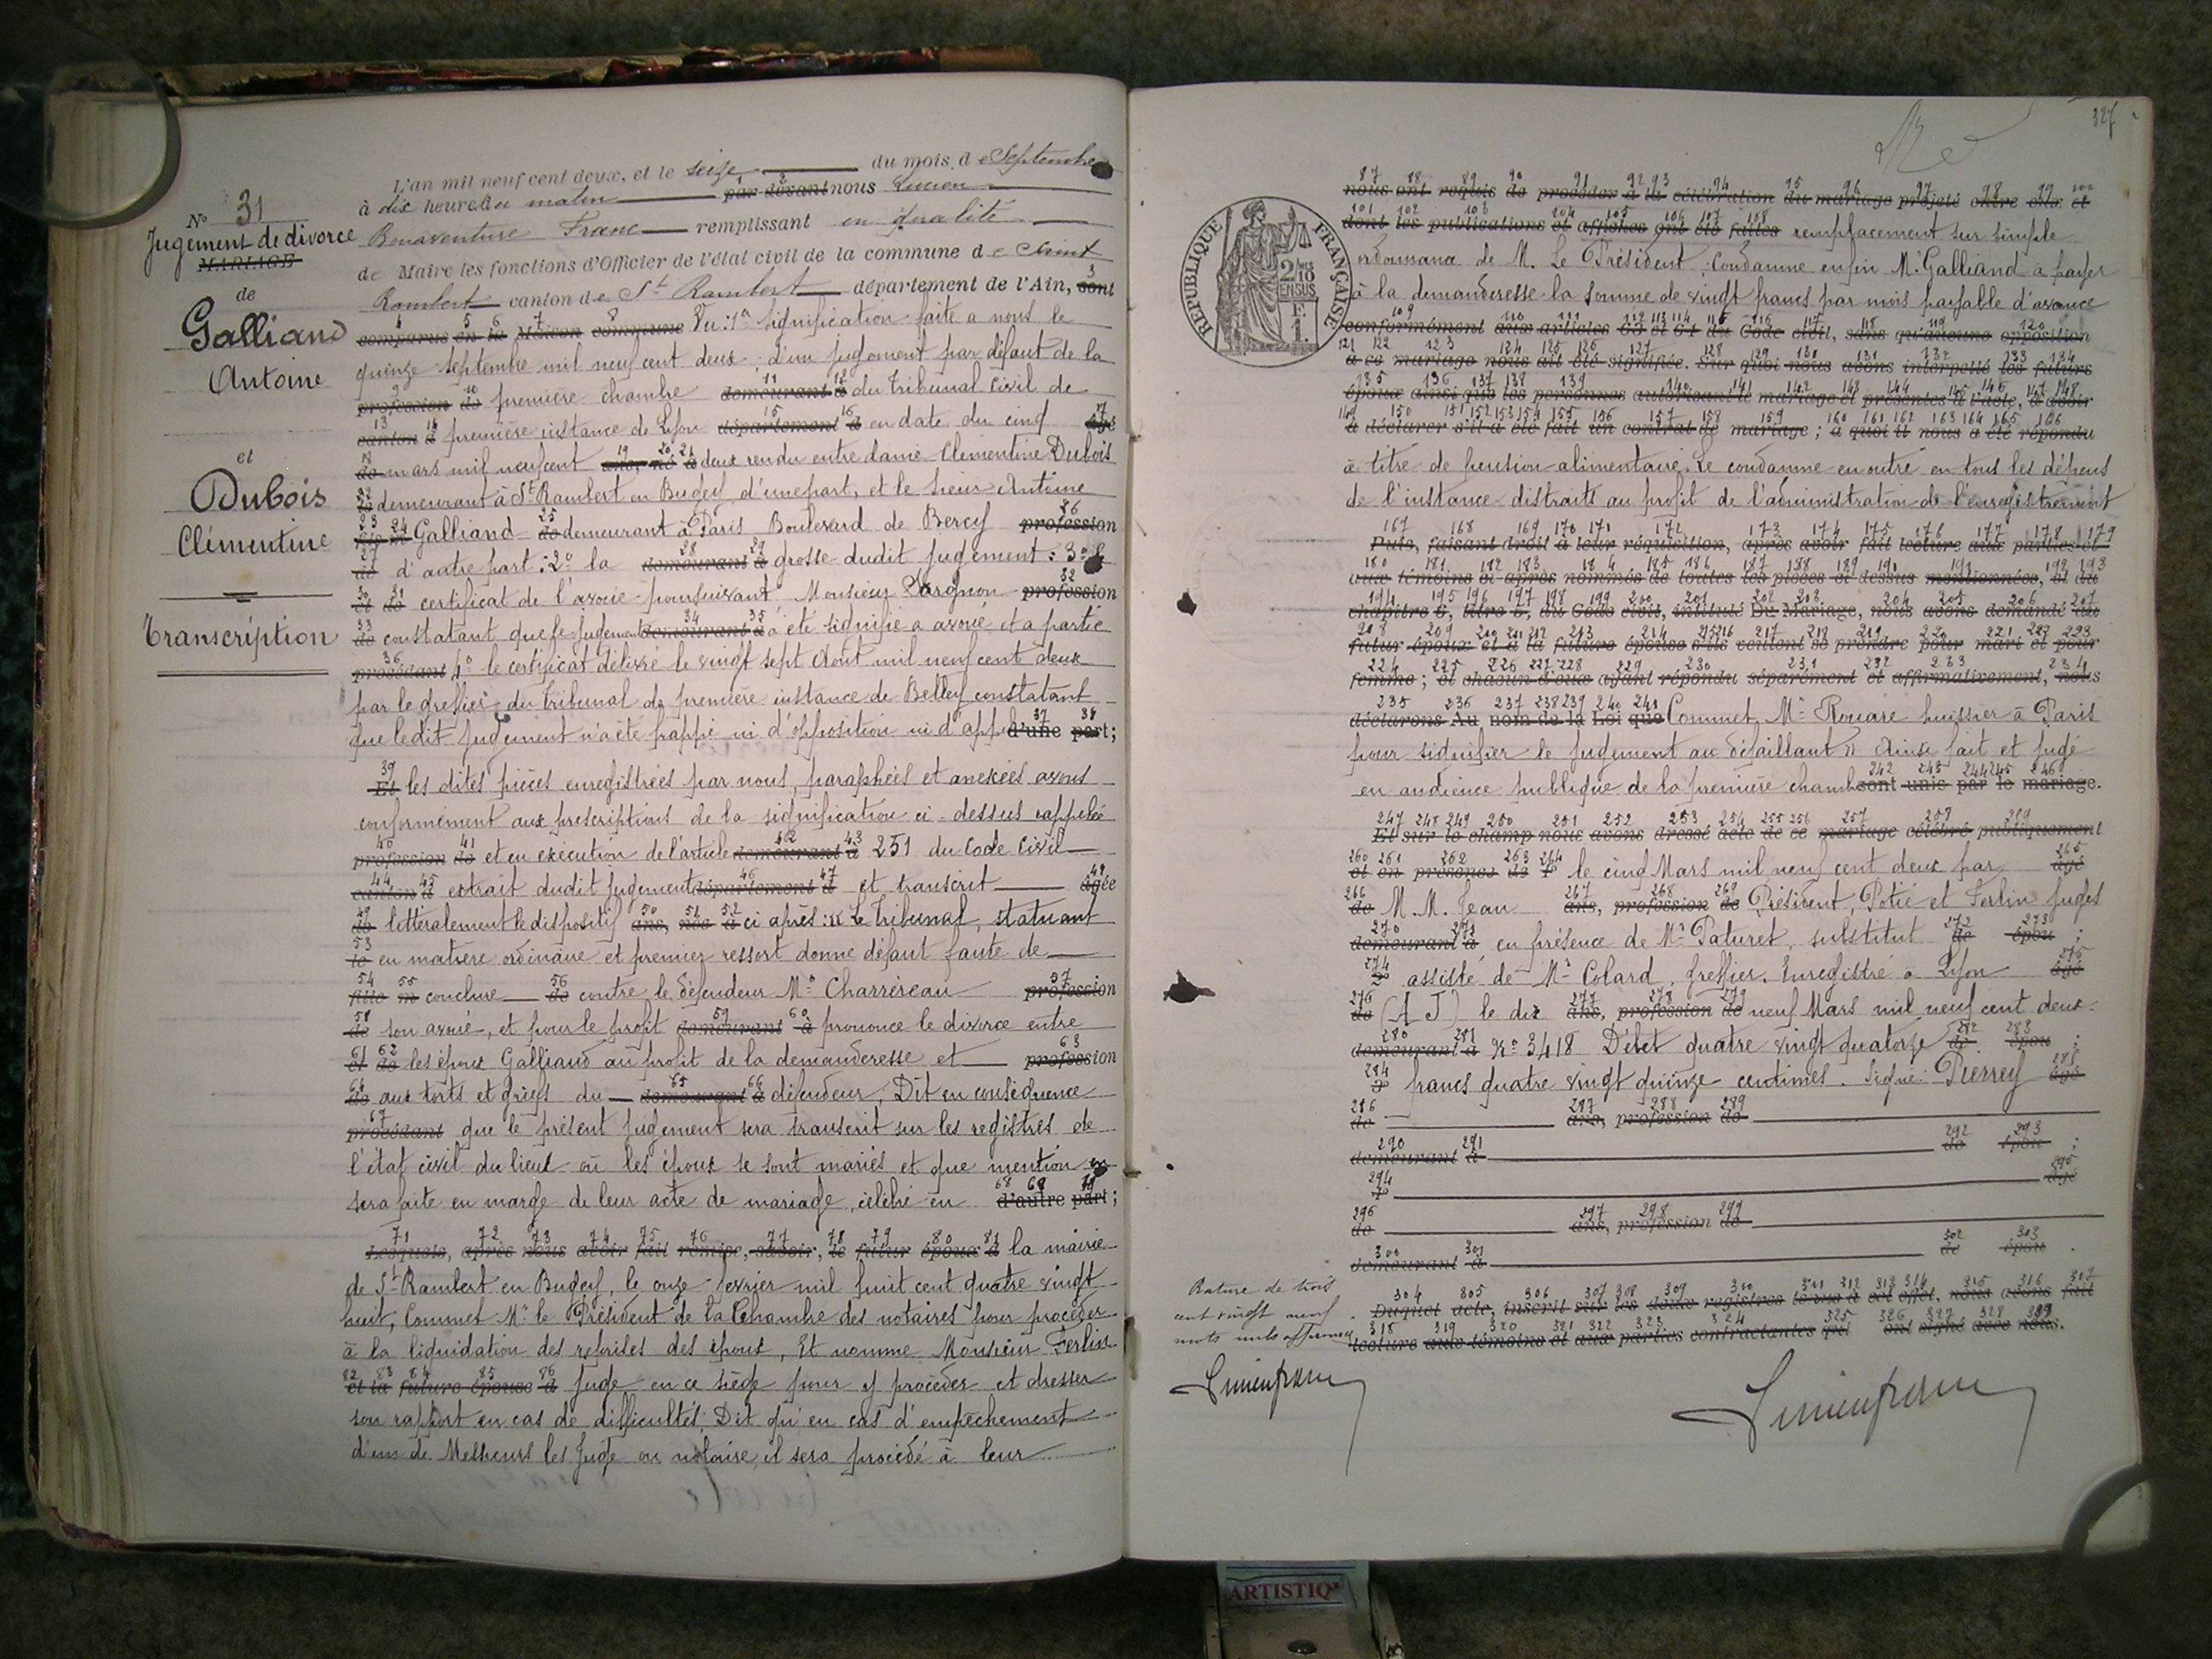 L'an mil neuf cent deux, et le seize du mois de Septembre
à dix heures du matin par devant nous Lucien
N° 31
Jugement de divorce
MARIAGE
Bonaventure Franc remplissant en qualité
de Maire les fonctions d'Officier de l'état civil de la commune de Saint
Rambert canton de St Rambert département de l'Ain, sont
comparus en la Maison commune Vu: 1° signification faite a nous le
quinze septembre mil neuf cent deux; d'un jugement par défaut de la
profession de première chambre demeurant à du Tribunal civil de
canton d première instance de Lyon département d en date du cinq âgé
de mars mil neuf cent ans, né à deux rendu entre dame Clémentine Dubois
le demeurant à St Rambert en Bugey, d'une part, et le sieur Antoine
fils m Galliand de demeurant à Paris Boulevard de Bercy profession
de d'autre part; 2° la demeurant à grosse dudit jugement: 3° le
et de certificat de l'avoué poursuivant Monsieur Vargnon profession
de constatant que le jugement demeurant à a été signifié a avoué et a partie
procédant 4° le certificat délivré le vingt sept Août mil neuf cent deux
par le greffier du Tribunal de première instance de Belley constatant
que le dit jugement n'a été frappé ni d'opposition ni d'appel d'une part;
Et les dites pièces enregistrées par nous, paraphées et anexées avons
conformément aux prescriptions de la signification ci-dessus rappelée
profession de et en exécution de l'article demeurant à 251 du Code Civil
canton d extrait dudit jugement département d et transcrit âgée
de littéralement le dispositif ans, née à ci après: « Le Tribunal, statuant
le en matière ordinaire et premier ressort donne défaut faute de
fille m conclure de contre le défendeur Me Charréreau profession
de son avoué, et pour le profit demeurant à prononce le divorce entre
et de les époux Galliand au profit de la demanderesse et profession
de aux torts et griefs du demeurant à défendeur; Dit en conséquence
procédant que le présent jugement sera transcrit sur les registres de
l'état civil du lieu où les époux se sont mariés et que mention en
sera faite en marge de leur acte de mariage, célébré en d'autre part;
Lesquels, après nous avoir fait remise, savoir, le futur époux à la mairie
de St Rambert en Bugey, le onze fevrier mil huit cent quatre vingt
huit, Commet Mr le Président de la Chambre des notaires pour procéder
à la liquidation des reprises des époux, Et nomme Monsieur Ferlin
et la future épouse à Juge en ce siège pour y procéder et dresser
son rapport en cas de difficultés; Dit qu'en cas d'empêchement
d'un de Messieurs les Juge ou notaire, il sera procédé à leur
de
Galliand
Antoine
et
Dubois
Clémentine
Transcription
327
RÉPUBLIQUE FRANÇAISE
nous ont requis de procéder à la célébration du mariage projeté entre eux et
dont les publications et affiches ont été faites remplacement sur simple
ordonnance de M. Le Président; Condamne enfin Mr Galliand à payer
à la demanderesse la somme de vingt francs par mois payable d'avance
conformément aux articles 63 et 64 du Code civil, sans qu'aucune opposition
à ce mariage nous ait été signifiée. Sur quoi nous avons interpellé les futurs
époux ainsi que les personnes autorisant le mariage et présentes à l'acte, à avoir
à déclarer s'il a été fait un contrat de mariage; à quoi il nous a été répondu
à titre de pension alimentaire. Le condamne en outre en tous les dépens
de l'instance distraits au profit de l'administration de l'enregistrement
Puis, faisant droit à leur réquisition, après avoir fait lecture aux parties et
aux témoins ci-après nommés de toutes les pièces ci-dessus mentionnées, et du
chapitre 6, titre 5, du Code civil, intitulé Du Mariage, nous avons demandé au
futur époux et à la future épouse s'ils veulent se prendre pour mari et pour
femme; et chacun d'eux ayant répondu séparément et affirmativement, nous
déclarons Au nom de la Loi que Commet Mr Rouare huissier à Paris
pour signifier le jugement au défaillant » Ainsi fait et jugé
en audience publique de la première chamb sont unis par le mariage.
Et sur le champ nous avons dressé acte de ce mariage célébré publiquement
et en présence de 1° le cinq Mars mil neuf cent deux par âgé
de M. M. Jean ans, profession de Président, Potié et Ferlin juges
demeurant à en présence de Mr Paturet, substitut de épou ;
2° assisté de Mr Colard, Greffier. Enregistré à Lyon âgé
de (A J) le dix ans, profession de neuf Mars mil neuf cent deux.
demeurant à No 3418 Débet quatre vingt quatorze de épou ;
3° francs quatre vingt quinze centimes. Signé: Pierrey âgé
de ans, profession de
demeurant à de épou ;
4° âgé
de ans, profession de
demeurant à de épou .
Duquel acte, inscrit sur les deux registres tenus à cet effet, nous avons fait
lecture aux témoins et aux parties contractantes qui ont signé avec nous.
Rature de trois
cent vingt neuf
mots nuls approuvés
Lucien franc
Lucien franc
ARTISTIQ